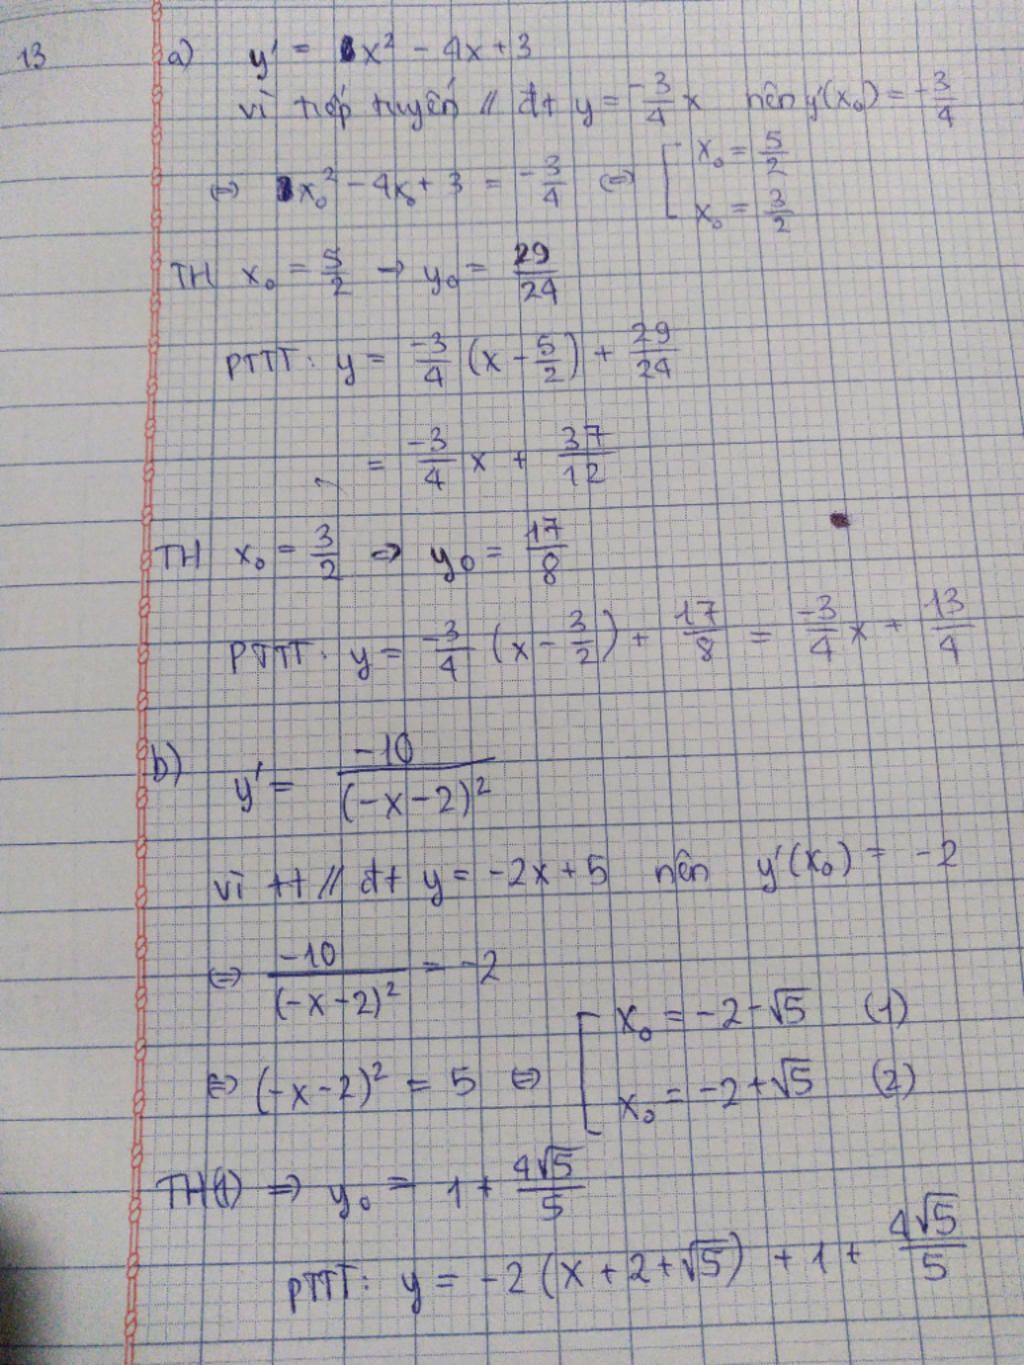 13 a) y' = x² - 4x + 3
vì tiếp tuyến // đt y = -3/4 x nên y'(x₀) = -3/4
⇔ x₀² - 4x₀ + 3 = -3/4 ⇔ [ x₀ = 5/2
x₀ = 3/2
TH x₀ = 5/2 → y₀ = 29/24
PTTT: y = -3/4 (x - 5/2) + 29/24
= -3/4 x + 37/12
TH x₀ = 3/2 ⇒ y₀ = 17/8
PTTT: y = -3/4 (x - 3/2) + 17/8 = -3/4 x + 13/4
b) y' = -10/(-x-2)²
vì tt // đt y = -2x + 5 nên y'(x₀) = -2
⇔ -10/(-x-2)² = -2
⇔ (-x-2)² = 5 ⇔ [ x₀ = -2 - √5 (1)
x₀ = -2 + √5 (2)
TH(1) ⇒ y₀ = 1 + 4√5/5
PTTT: y = -2 (x + 2 + √5) + 1 + 4√5/5